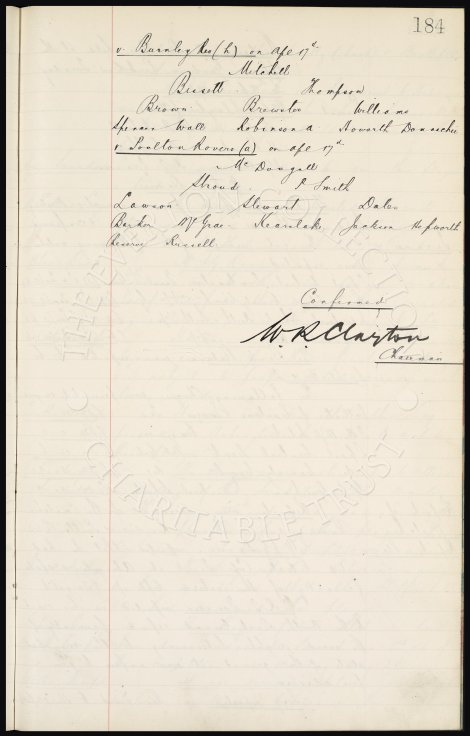 184
v. Burnley Res (h) on Apl 17th
Mitchell
Bissett Thompson
Brown Brewster Williams
Spencer Wall Robinson A Howarth Donnachie
v Soulton Rovers (a) on Apl 17th
McDougall
Stroud P Smith
Lawson Stewart Daley
Barker McGrae Kearslake Jackson Hepworth
Reserve Russell
Confirmed
W. R. Clayton
Chairman
THE EVERTON COLLECTION
CHARITABLE TRUST